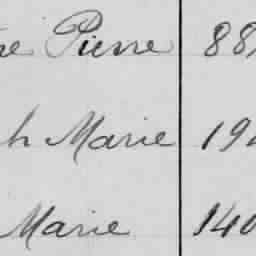 Pierre 88
h Marie 19
Marie 140